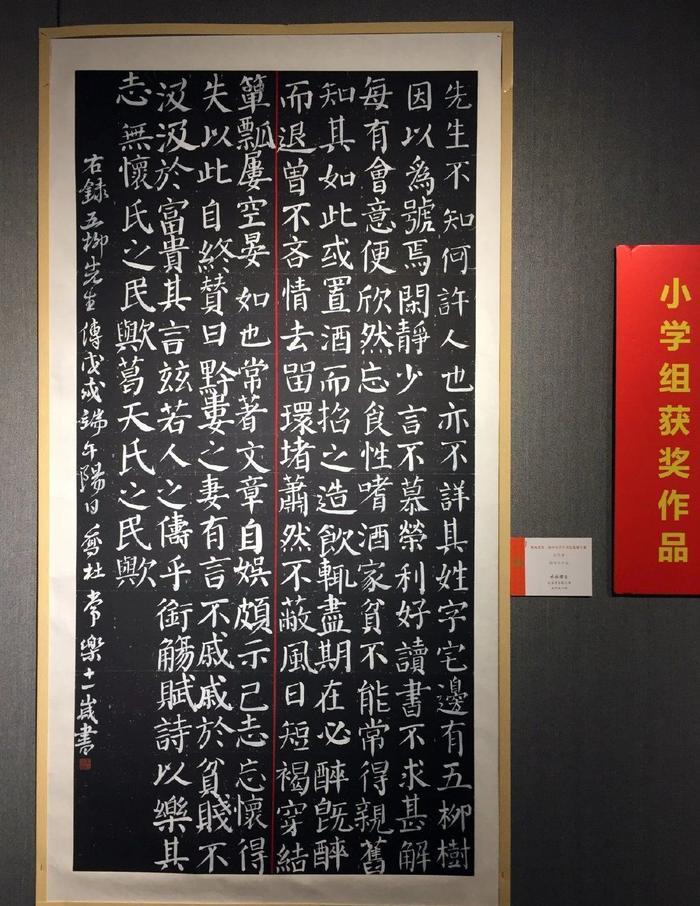 先生不知何許人也亦不詳其姓字宅邊有五柳樹
因以爲號焉閑靜少言不慕榮利好讀書不求甚解
每有會意便欣然忘食性嗜酒家貧不能常得親舊
知其如此或置酒而招之造飲輒盡期在必醉既醉
而退曾不吝情去留環堵蕭然不蔽風日短褐穿結
簞瓢屢空晏如也常著文章自娛頗示己志忘懷得
失以此自終贊曰黔婁之妻有言不戚戚於貧賤不
汲汲於富貴其言茲若人之儔乎銜觴賦詩以樂其
志無懷氏之民歟葛天氏之民歟
右錄五柳先生傳戊戌端午陽日喬杜常樂十一歲書
小学组获奖作品